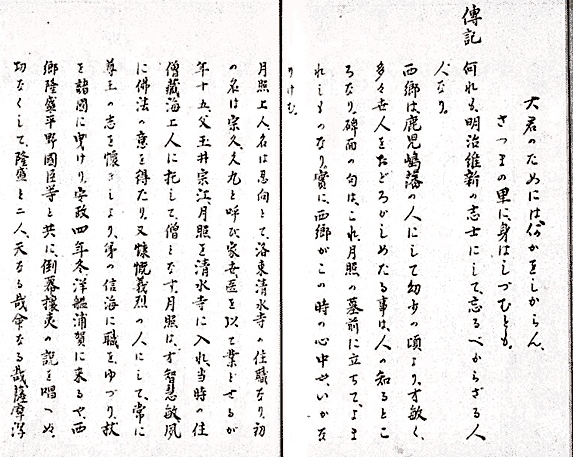 大君のためには、何かをしからん、
さつまの里に、身はしづむとも。
傳記 何れも、明治維新の志士にして、忘るべからざる人
人なり。
西郷は、鹿児嶋藩の人にして、幼少の頃より、才敏く、
多く世人をおどろかしめたる事は、人の知るとこ
ろなり、碑面の句は、これ月照の墓前に立ちて、よま
れしものなり、實に、西郷がこの時の心中や、いかな
りけむ。
月照上人、名は忍向とて、洛東清水寺の住職なり、初
の名は宗久、久丸と呼び、家世医を以て業とせるが
年十五、父玉井宗江、月照を清水寺に入れ、当時の住
僧藏海上人に托して、僧となす、月照は、才智慧敏、夙
に佛法の意を得たり、又慷慨義烈の人にして、常に
尊王の志を懐きしより、弟の信海に職をゆづり、杖
を諸國に曳けり、安政四年冬、洋艦浦賀に来るや、西
郷隆盛平野國臣等と共に、倒幕攘夷の説を唱へぬ、
功なくして、隆盛と二人、天なる哉命なる哉、薩摩潟